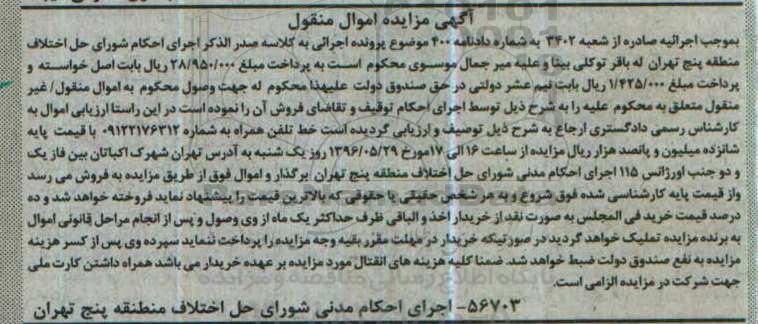 آگهی مزایده اموال منقول
بموجب اجرائیه صادره از شعبه ۳۴۰۲ به شماره دادنامه ۴۰۰ موضوع پرونده اجرائی به کلاسه صدر الذکر اجرای احکام شورای حل اختلاف
منطقه پنج تهران له باقر توکلی بینا و علیه میر جمال موسوی محکوم است به پرداخت مبلغ ۲۸/۹۵۰/۰۰۰ ریال بابت اصل خواسته و
پرداخت مبلغ ۱/۴۲۵/۰۰۰ ریال بابت نیم عشر دولتی در حق صندوق دولت علیهذا محکوم له جهت وصول محکوم به اموال منقول/ غیر
منقول متعلق به محکوم علیه را به شرح ذیل توسط اجرای احکام توقیف و تقاضای فروش آن را نموده است در این راستا ارزیابی اموال به
کارشناس رسمی دادگستری ارجاع به شرح ذیل توصیف و ارزیابی گردیده است خط تلفن همراه به شماره ۰۹۱۲۲۱۷۶۳۱۲ با قیمت پایه
شانزده میلیون و پانصد هزار ریال مزایده از ساعت ۱۶ الی ۱۷مورخ ۱۳۹۶/۰۵/۲۹ روز یک شنبه به آدرس تهران شهرک اکباتان بین فاز یک
و دو جنب اورژانس ۱۱۵ اجرای احکام مدنی شورای حل اختلاف منطقه پنج تهران برگذار و اموال فوق از طریق مزایده به فروش می رسد
واز قیمت پایه کارشناسی شده فوق شروع و به هر شخص حقیقی یا حقوقی که بالاترین قیمت را پیشنهاد نماید فروخته خواهد شد و ده
درصد قیمت خرید فی المجلس به صورت نقد از خریدار اخذ و الباقی ظرف حداکثر یک ماه از وی وصول و پس از انجام مراحل قانونی اموال
به برنده مزایده تملیک خواهد گردید در صورتیکه خریدار در مهلت مقرر بقیه وجه مزایده را پرداخت ننماید سپرده وی پس از کسر هزینه
مزایده به نفع صندوق دولت ضبط خواهد شد. ضمنا کلیه هزینه های انتقال مورد مزایده بر عهده خریدار می باشد همراه داشتن کارت ملی
جهت شرکت در مزایده الزامی است.
۵۶۷۰۳- اجرای احکام مدنی شورای حل اختلاف منطنقه پنج تهران